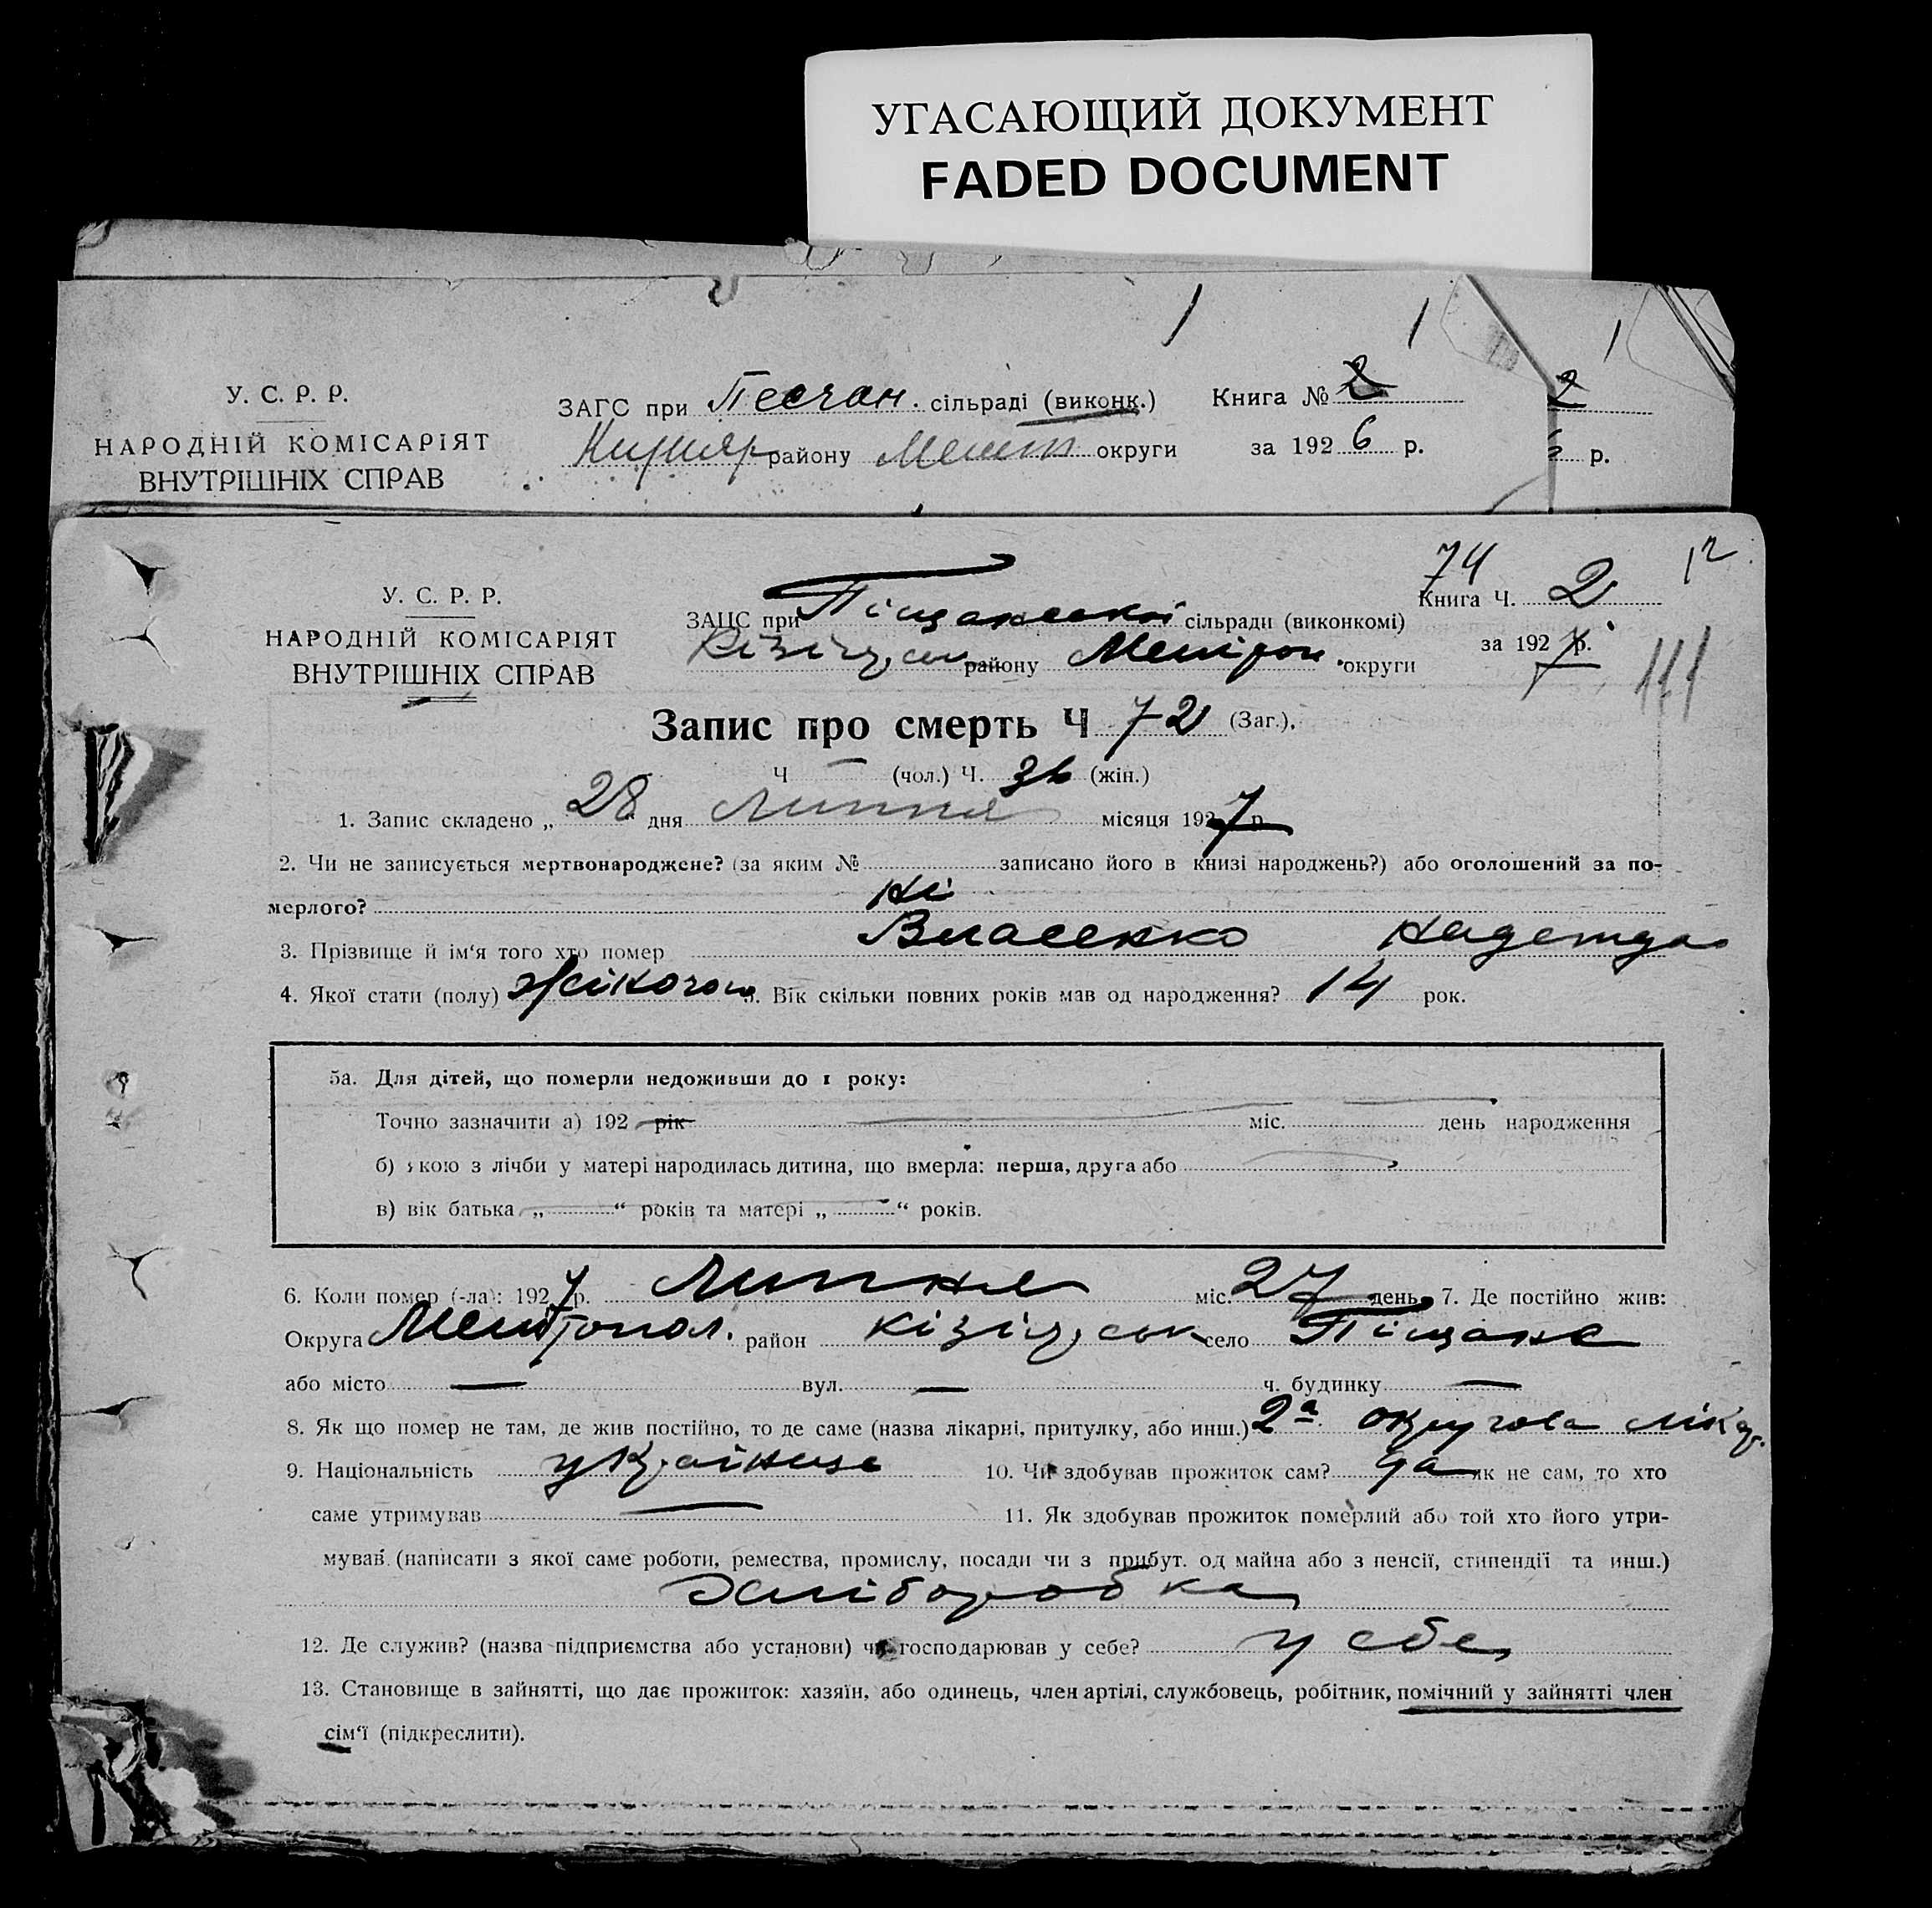 УГАСАЮЩИЙ ДОКУМЕНТ
FADED DOCUMENT
У. С. Р. Р.
НАРОДНІЙ КОМІСАРІЯТ
ВНУТРІШНІХ СПРАВ
ЗАГС при Песчан. сільраді (виконк.)
району Мелит округи
Книга № 2
за 1926 р.
2
6 р.
74
12
У. С. Р. Р.
НАРОДНІЙ КОМІСАРІЯТ
ВНУТРІШНІХ СПРАВ
ЗАЦС при Піщанській сільради (виконкомі)
району округи
Книга Ч. 2
за 1927 р.
Запис про смерть Ч 72 (Заг.),
Ч — (чол.) Ч. 36 (жін.)
1. Запис складено „ 28 “ дня Липня місяця 1927 р.
2. Чи не записується мертвонароджене? (за яким № записано його в книзі народжень?) або оголошений за по-
мерлого? Ні
3. Прізвище й ім‘я того хто помер Власенко Надежда
4. Якої стати (полу) жіночої 5. Вік скільки повних років мав од народження? 14 рок.
5а. Для дітей, що померли недоживши до 1 року:
Точно зазначити а) 192 рік міс. день народження
б) якою з лічби у матері народилась дитина, що вмерла: перша, друга або
в) вік батька „ “ років та матері „ “ років.
6. Коли помер (-ла): 1927 р. Липня міс. 27 день 7. Де постійно жив:
Округа Мелітопол. район Кізіцʼярськ село Піщане
або місто — вул. — ч. будинку —
8. Як що помер не там, де жив постійно, то де саме (назва лікарні, притулку, або инш.) 2а округова лікар.
9. Національність українце 10. Чи здобував прожиток сам? да як не сам, то хто
саме утримував —
11. Як здобував прожиток померлий або той хто його утри-
мував (написати з якої саме роботи, ремества, промислу, посади чи з прибут. од майна або з пенсії, стипендії та инш.)
Хліборобка
12. Де служив? (назва підприємства або установи) чи господарював у себе? у себе
13. Становище в зайнятті, що дає прожиток: хазяїн, або одинець, член артілі, службовець, робітник, помічний у зайнятті член
сім‘ї (підкреслити).